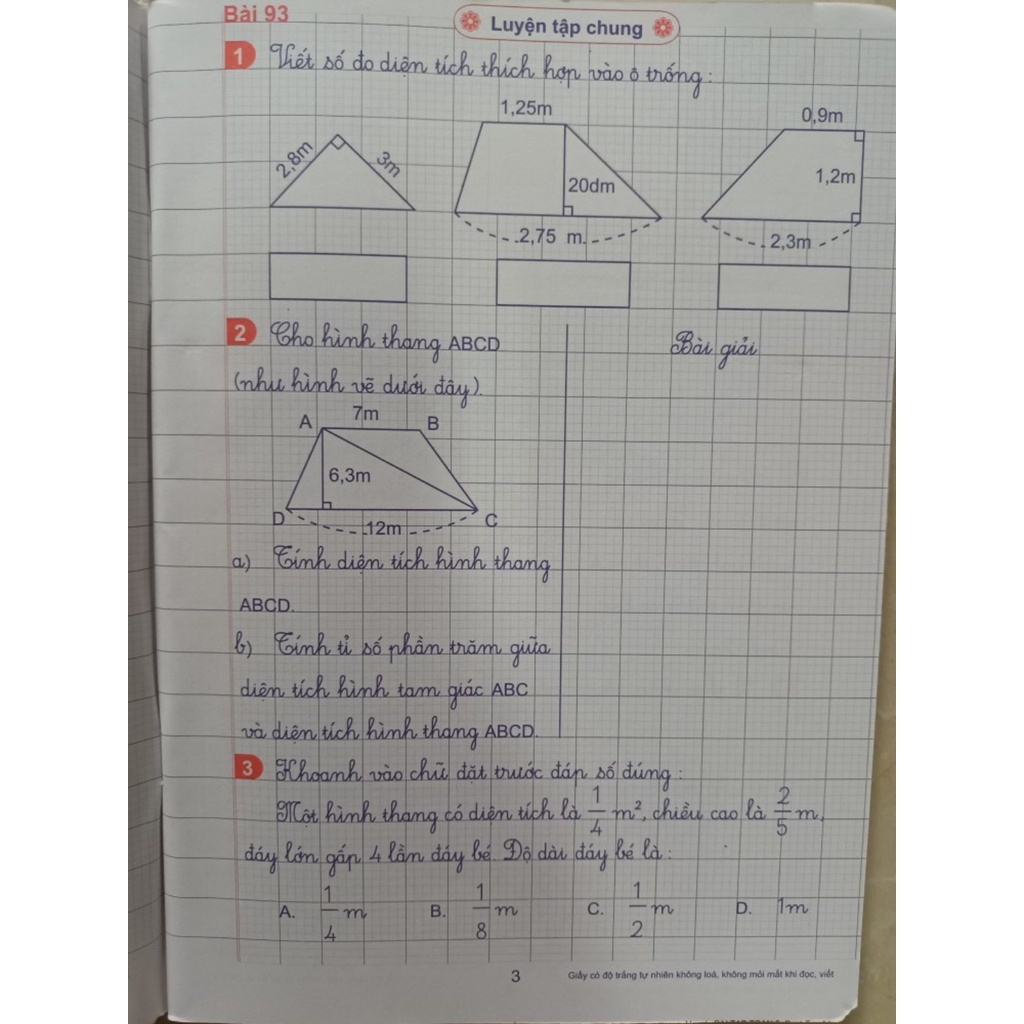 Bài 93
Luyện tập chung
1 Viết số đo diện tích thích hợp vào ô trống:
1,25m
0,9m
2,8m
3m
20dm
1,2m
2,75 m
2,3m
2 Cho hình thang ABCD
(như hình vẽ dưới đây).
7m
A
B
6,3m
D
12m
C
a) Tính diện tích hình thang
ABCD.
b) Tính tỉ số phần trăm giữa
diện tích hình tam giác ABC
và diện tích hình thang ABCD.
Bài giải
3 Khoanh vào chữ đặt trước đáp số đúng:
Một hình thang có diện tích là 1/4 m², chiều cao là 2/5 m,
đáy lớn gấp 4 lần đáy bé. Độ dài đáy bé là:
A. 1/4 m B. 1/8 m C. 1/2 m D. 1m
3
Giấy có độ trắng tự nhiên không loá, không mỏi mắt khi đọc, viết